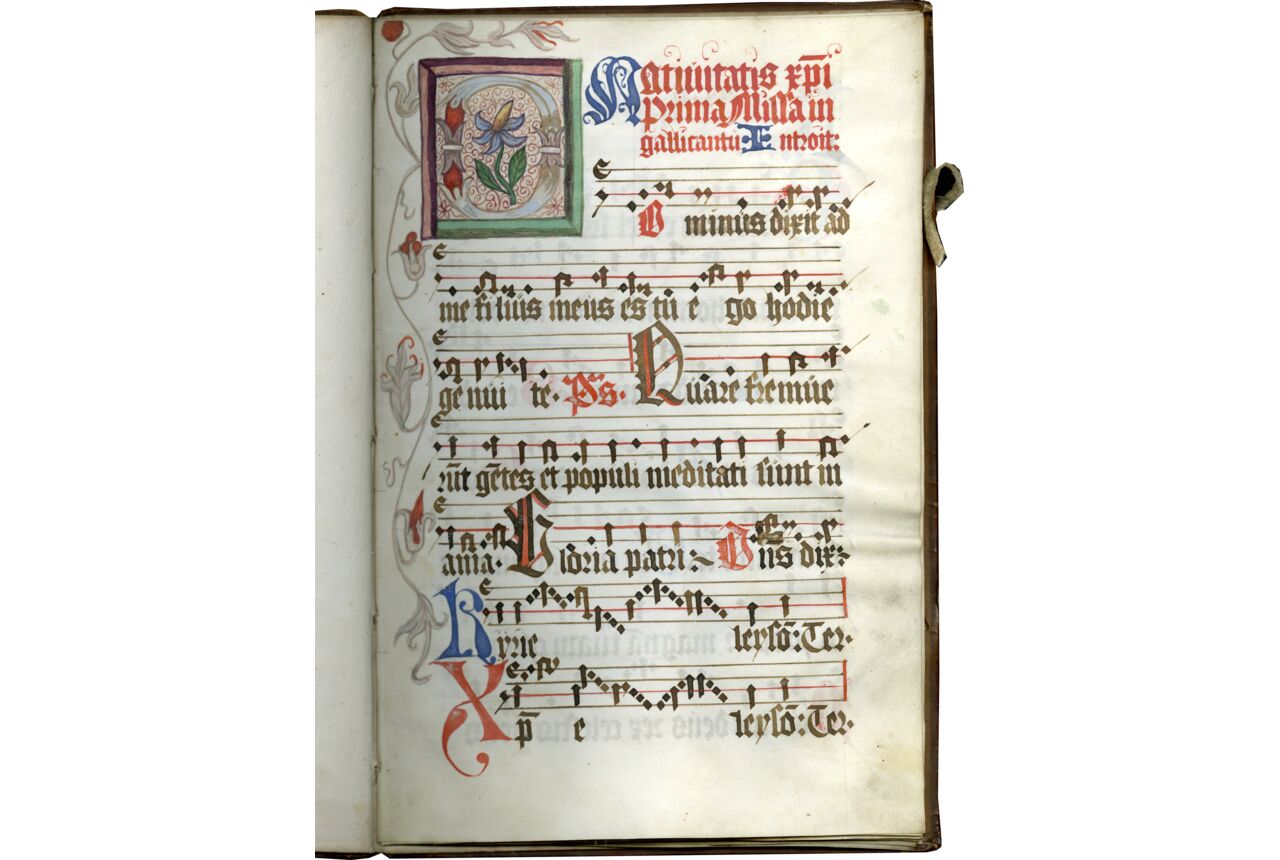 Natiuitatis xp̄i
Prima Missa in
gallicantu: Entroit:
Dominus dixit ad
me filius meus es tu ego hodie
genui te. Ps. Quare fremue
rūt gētes et populi meditati sunt in
ania. Gloria patri: Dn̄s dix:
Kyrie leysō: Ter.
Xp̄e leysō: Ter.